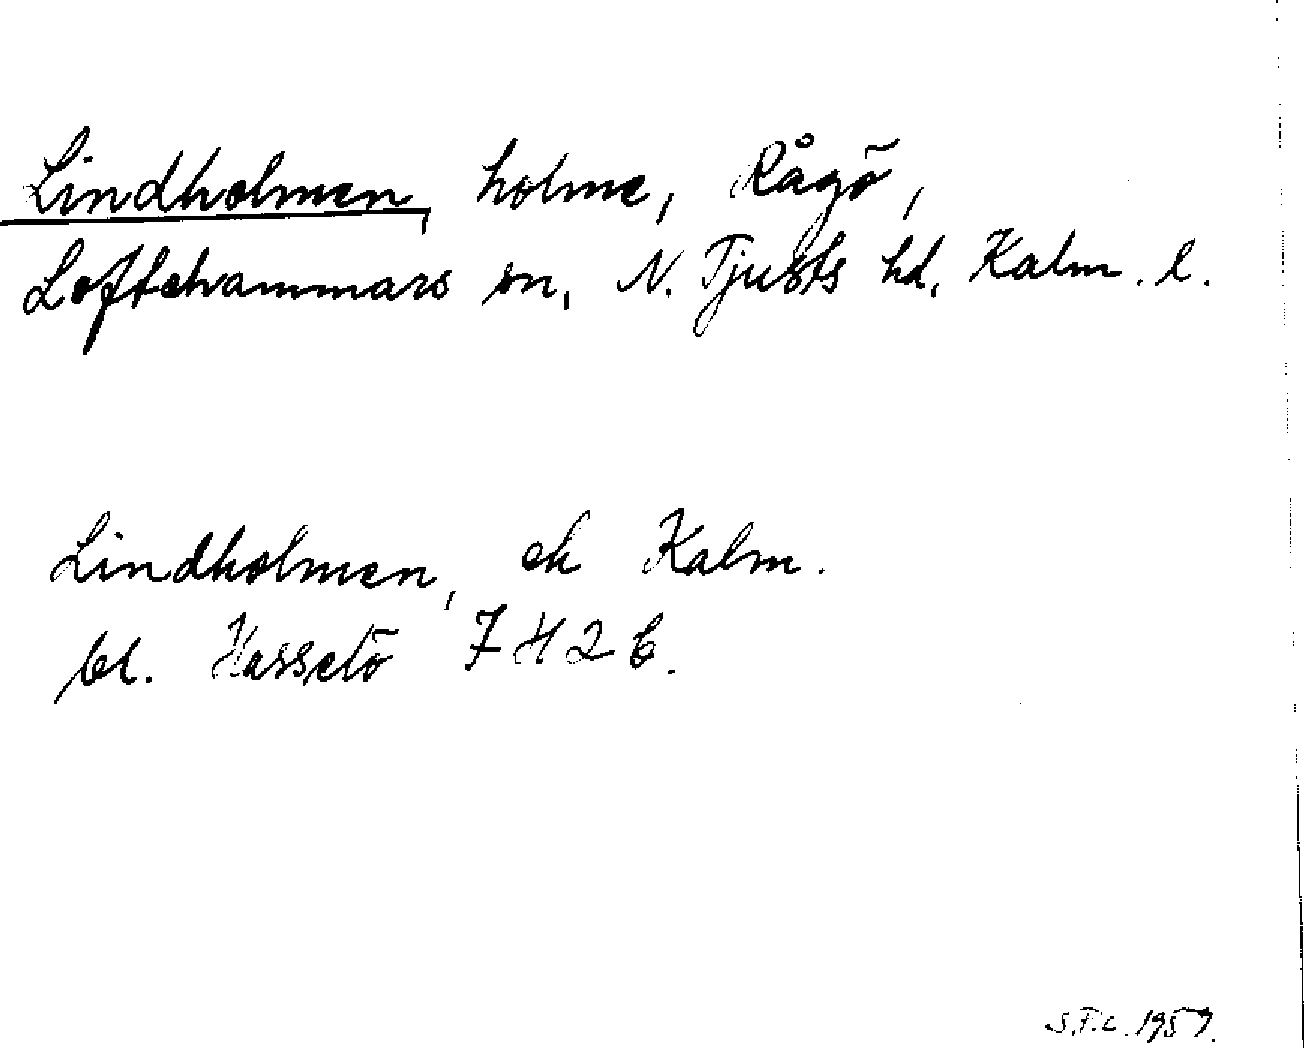 Lindholmen, holme, Rågö,
Loftahammars sn, N. Tjusts hd, Kalm. l.
Lindholmen, ek Kalm.
bl. Hasselö 7H2b.
S.F.L. 1957.